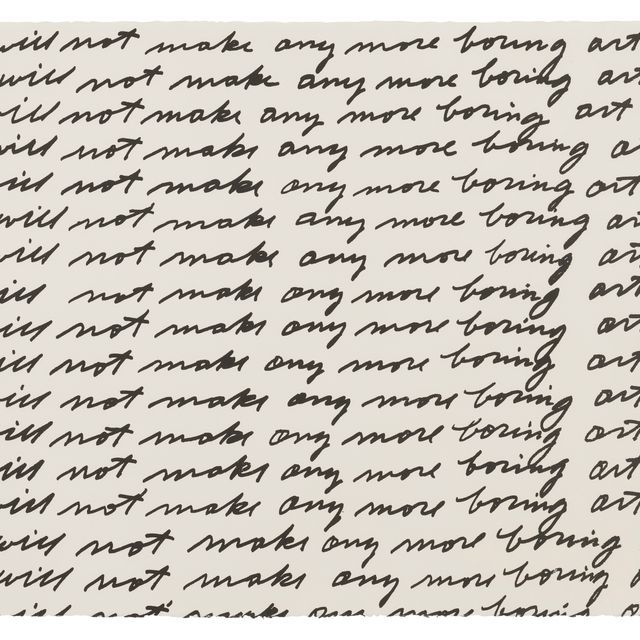 will not make any more boring art
will not make any more boring art
will not make any more boring art
will not make any more boring a
will not make any more boring art
will not make any more boring ar
will not make any more boring art
will not make any more boring art
will not make any more boring art
ill not make any more boring art
ill not make any more boring art
ill not make any more boring art
ill not make any more boring art
ill not make any more boring art
will not make any more boring
will not make any more boring
ill not make any more boring